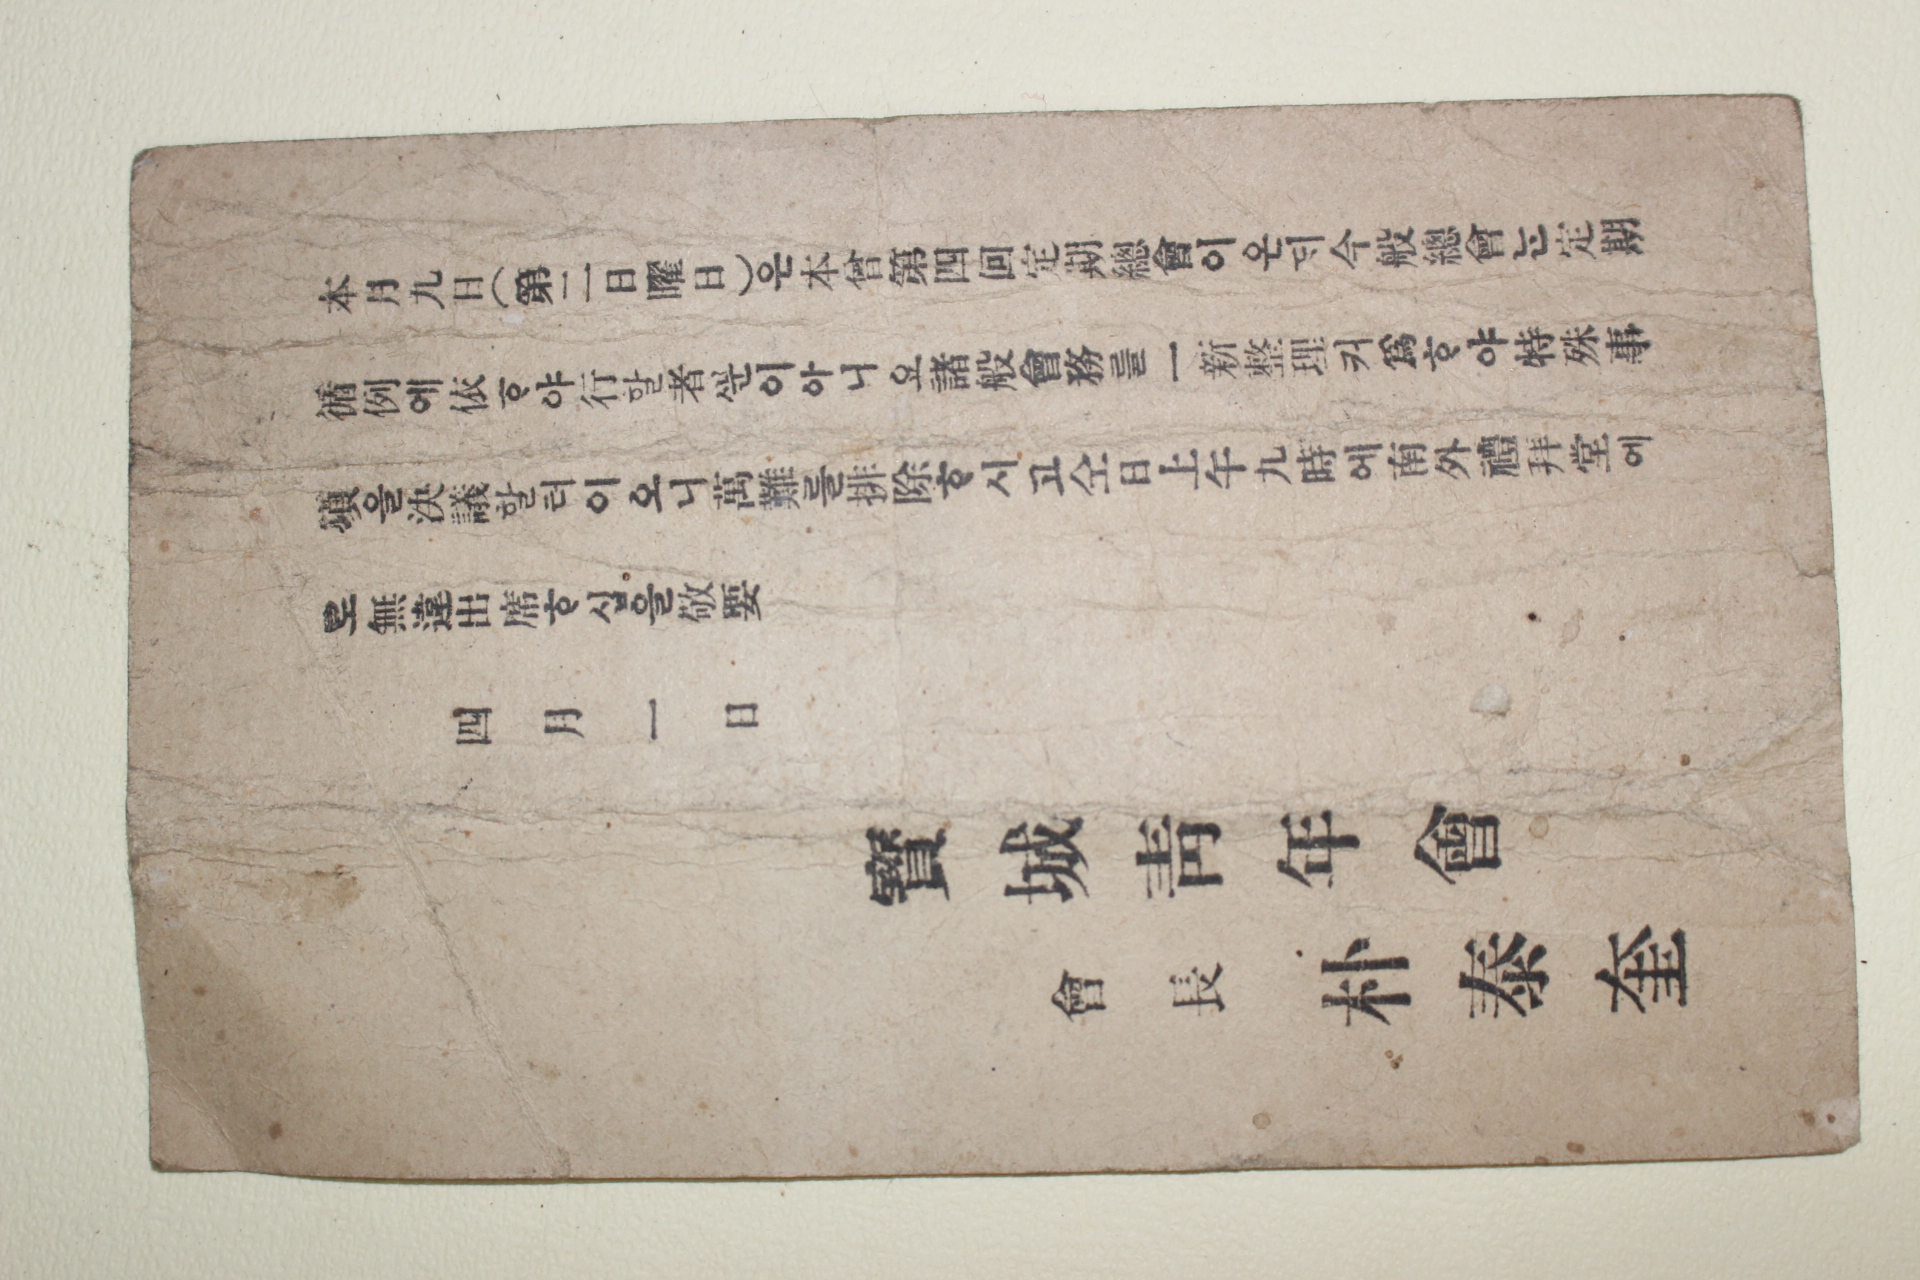 本月九日(第二日曜日)은本會第四回定期總會이온ᄃᆡ今般總會ᄂᆞᆫ定期
循例에依ᄒᆞ야行할者ᄲᅮᆫ이아니요諸般會務를一新整理키爲ᄒᆞ야特殊事
項을決議할터이오니萬難를排除ᄒᆞ시고仝日上午九時에南外禮拜堂에
로無違出席ᄒᆞ심을敬要
四月一日
寶城靑年會
會長 朴泰奎